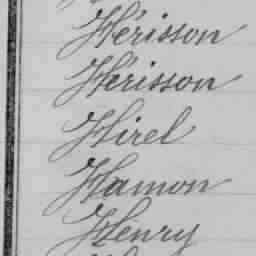 Hérisson
Hérisson
Hirel
Hamon
Henry